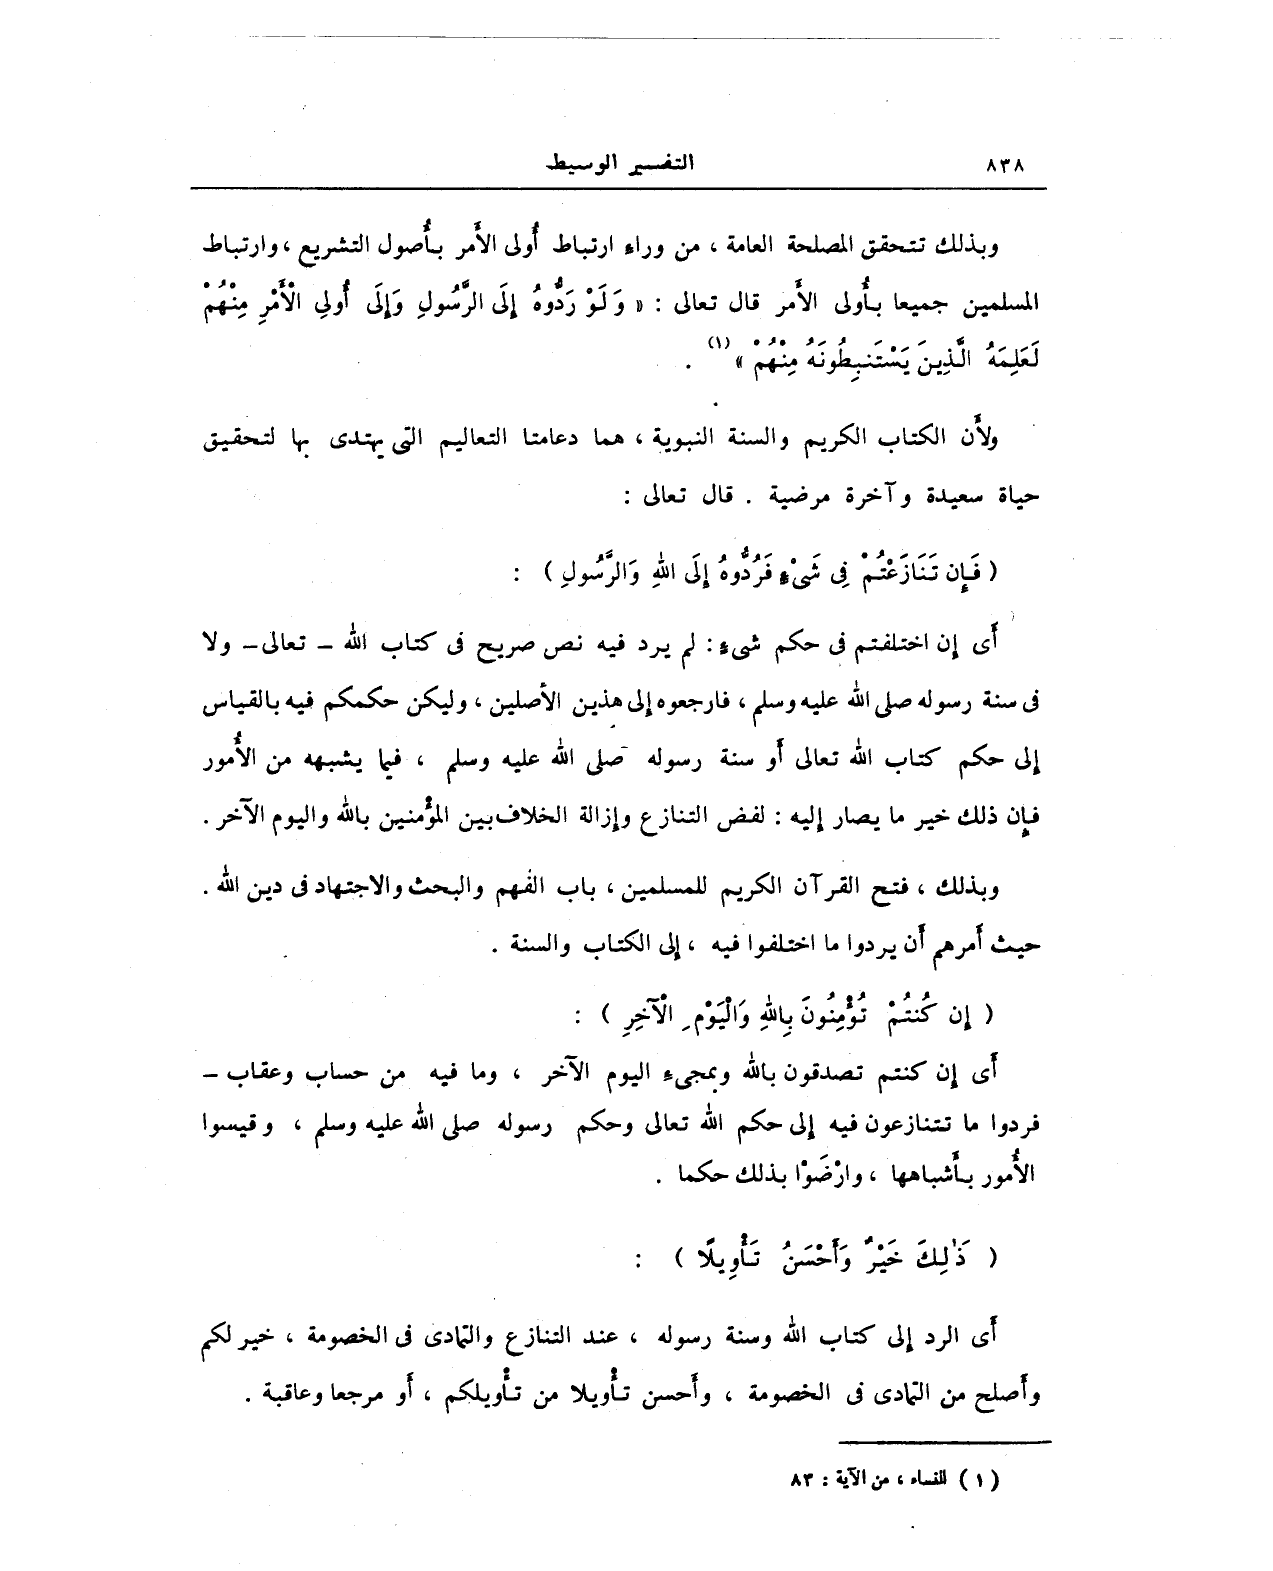 ٨٣٨ التفسير الوسيط
وبذلك تتحقق المصلحة العامة ، من وراء ارتباط أُولى الأَمر بأُصول التشريع ، وارتباط
المسلمين جميعا بأُولى الأَمر قال تعالى : « وَلَوْ رَدُّوهُ إِلَى الرَّسُولِ وَإِلَى أُولِى الْأَمْرِ مِنْهُمْ
لَعَلِمَهُ الَّذِينَ يَسْتَنبِطُونَهُ مِنْهُمْ » (١) .
ولأَن الكتاب الكريم والسنة النبوية ، هما دعامتا التعاليم التى يهتدى بها لتحقيق
حياة سعيدة وآخرة مرضية . قال تعالى :
( فَإِن تَنَازَعْتُمْ فِى شَىْءٍ فَرُدُّوهُ إِلَى اللهِ وَالرَّسُولِ ) :
أَى إِن اختلفتم فى حكم شىءٍ : لم يرد فيه نص صريح فى كتاب الله – تعالى – ولا
فى سنة رسوله صلى الله عليه وسلم ، فارجعوه إلى هذين الأَصلين ، وليكن حكمكم فيه بالقياس
إلى حكم كتاب الله تعالى أَو سنة رسوله صلى الله عليه وسلم ، فيما يشبهه من الأُمور
فإن ذلك خير ما يصار إليه : لفض التنازع وإزالة الخلاف بين المؤْمنين بالله واليوم الآخر .
وبذلك ، فتح القرآن الكريم للمسلمين ، باب الفهم والبحث والاجتهاد فى دين الله .
حيث أَمرهم أَن يردوا ما اختلفوا فيه ، إلى الكتاب والسنة .
( إِن كُنتُمْ تُؤْمِنُونَ بِاللهِ وَالْيَوْمِ الْآخِرِ ) :
أَى إِن كنتم تصدقون بالله وبمجىء اليوم الآخر ، وما فيه من حساب وعقاب –
فردوا ما تتنازعون فيه إلى حكم الله تعالى وحكم رسوله صلى الله عليه وسلم ، وقيسوا
الأُمور بأَشباهها ، وارْضَوْا بذلك حكما .
( ذَٰلِكَ خَيْرٌ وَأَحْسَنُ تَأْوِيلًا ) :
أَى الرد إلى كتاب الله وسنة رسوله ، عند التنازع والتمادى فى الخصومة ، خير لكم
وأَصلح من التمادى فى الخصومة ، وأَحسن تأْويلا من تأْويلكم ، أَو مرجعا وعاقبة .
( ١ ) النساء ، من الآية : ٨٣